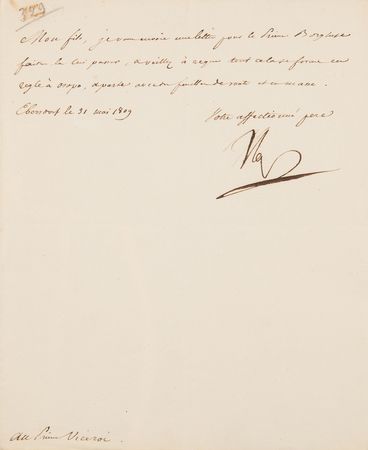 729
Mon fils, je vous envoie une lettre pour le Prince Borghese
faites la lui passer, & veillez à ce que tout cela se forme en
regle à Osopo, & parte avec feuilles de route et en masse.
Ebersdorf le 31 mai 1809
Votre affectionné pere
Na
au Prince Viceroi.